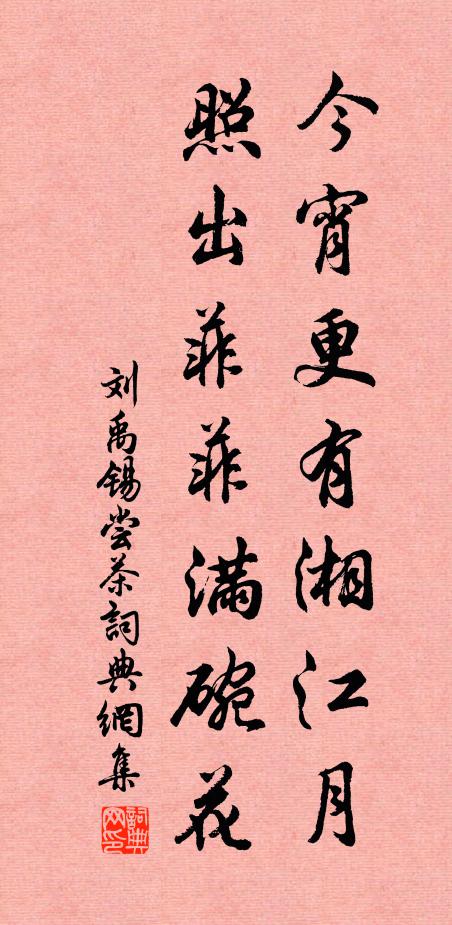 今宵更有湘江月
照出菲菲满碗花
刘禹锡尝茶詞典網集
詞典网印